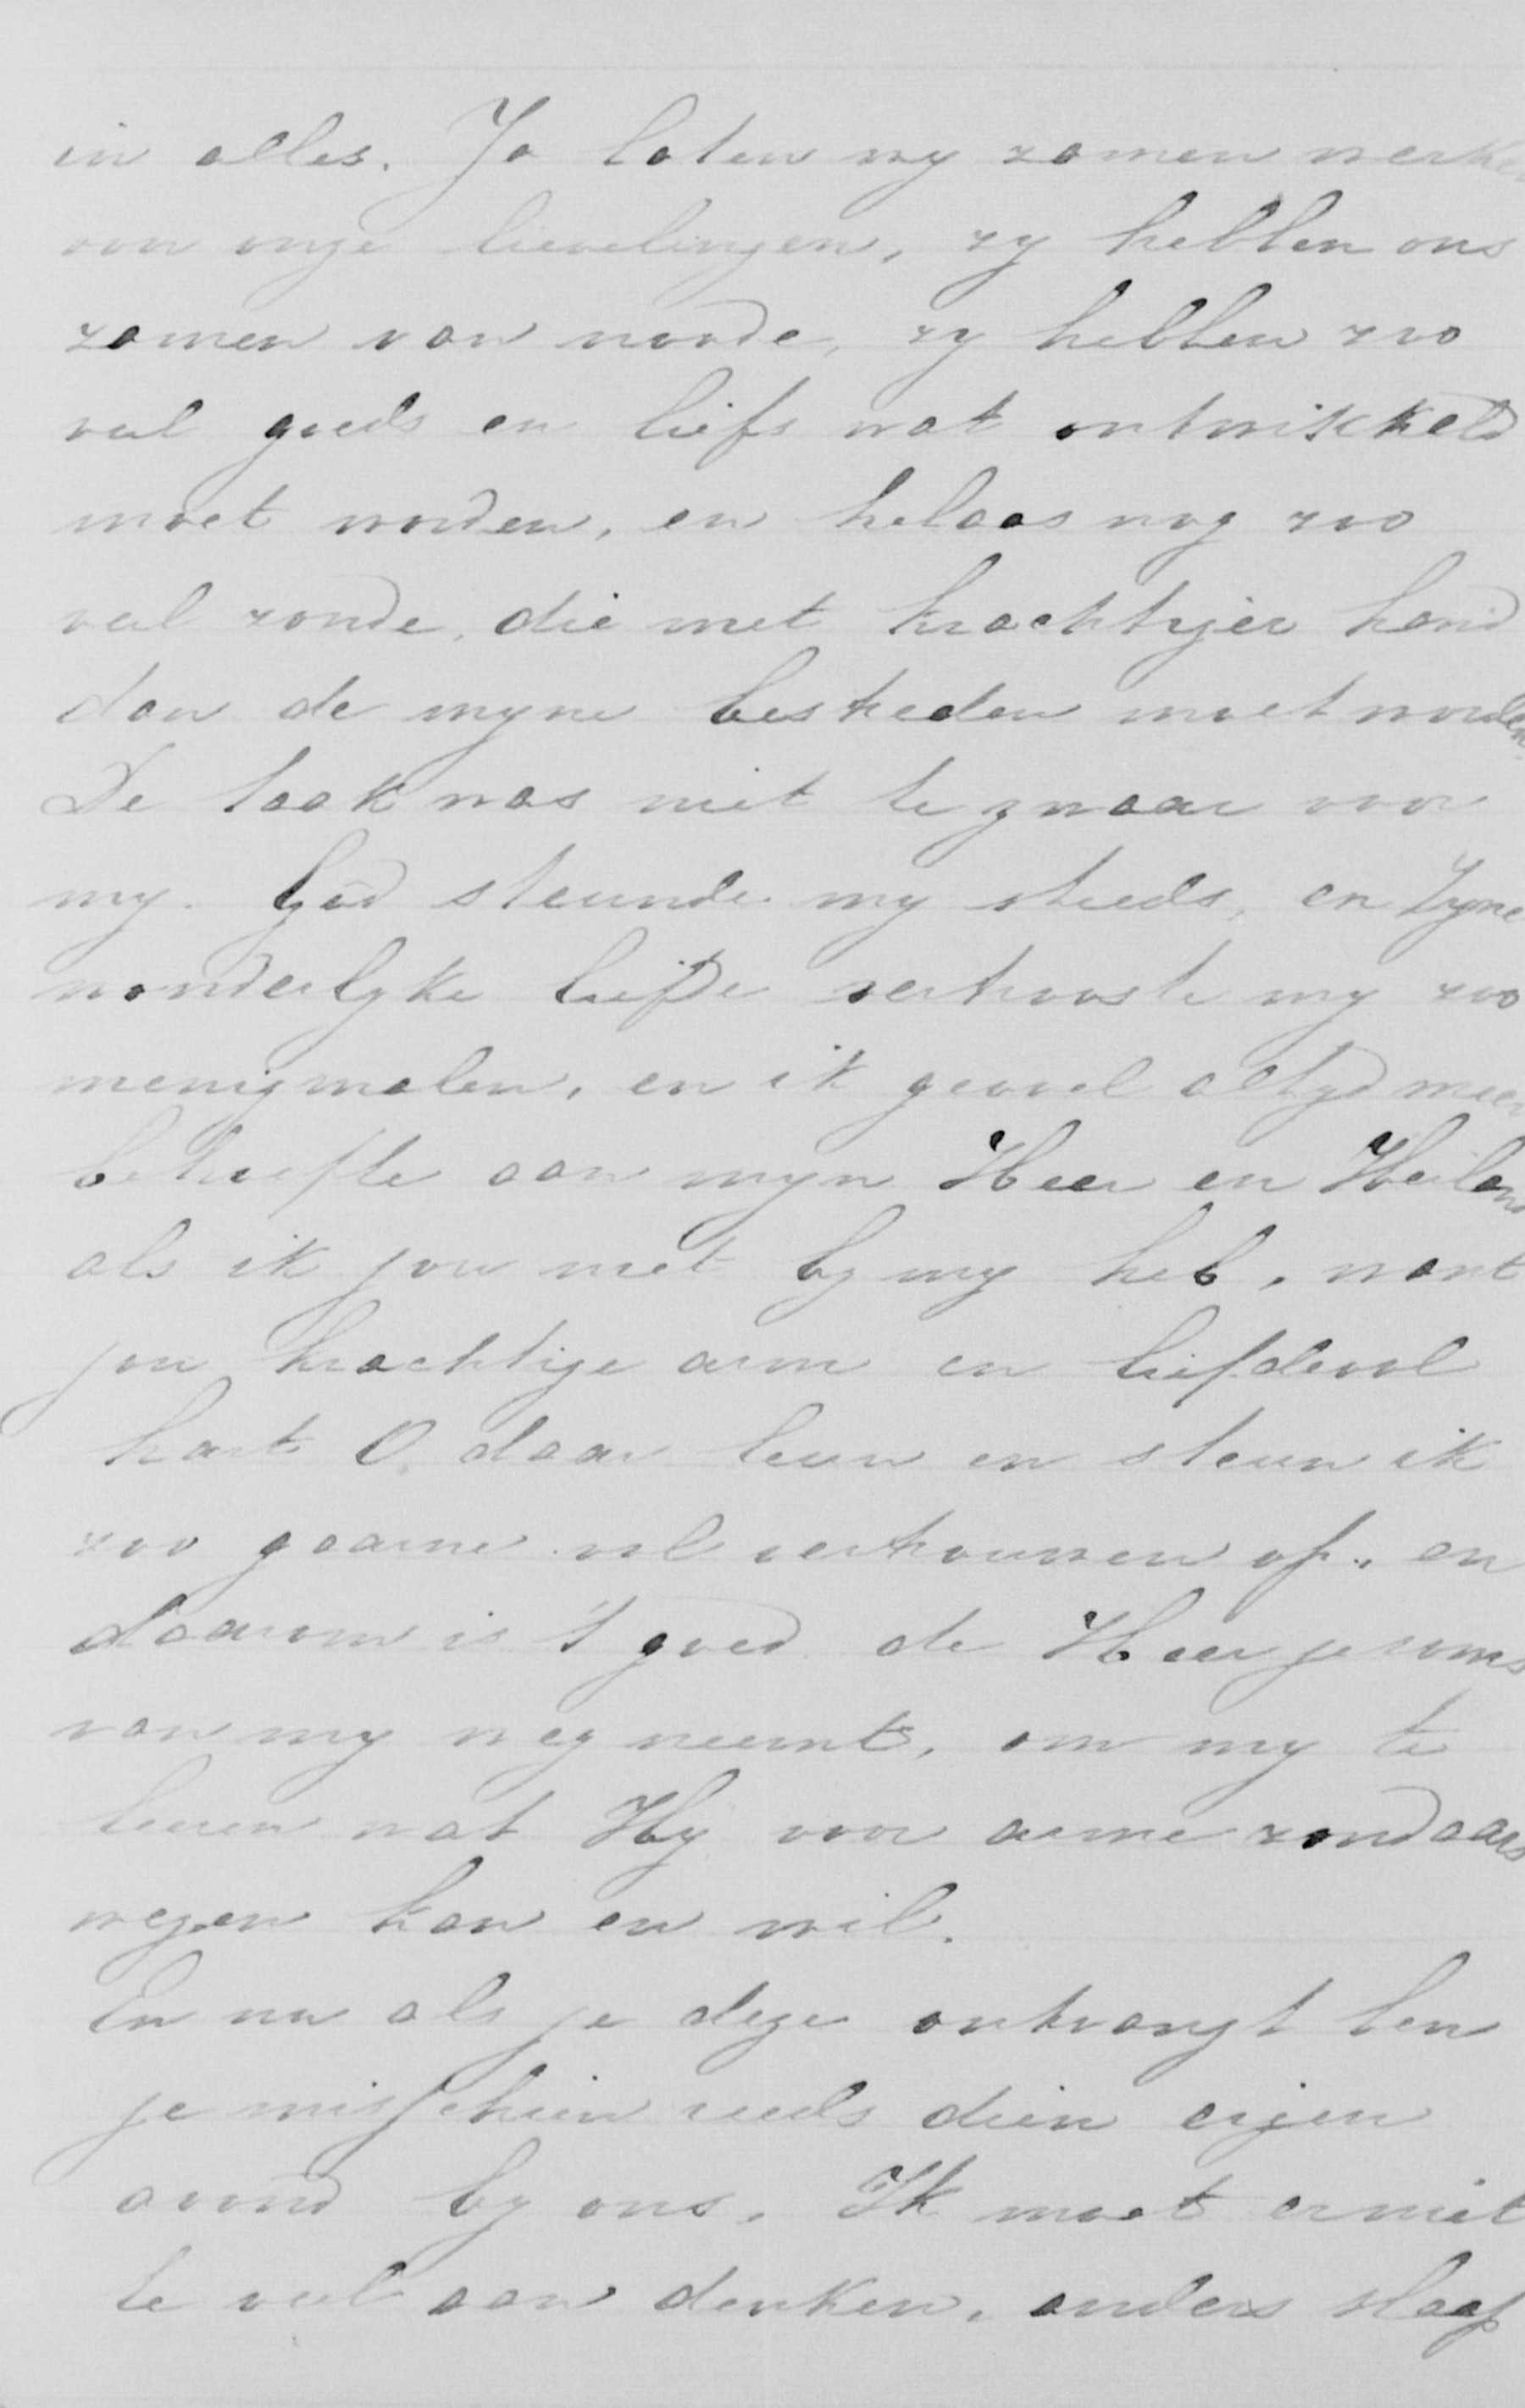 in alles. Ja laten wy zamen werken
voor onze lievelingen, zy hebben ons
zamen van noode, zy hebben zoo
veel goeds en liefs wat ontwikkeld
moet worden, en helaas nog zoo
veel zonde, die met krachtiger hand
dan de myne bestreden moet worden.
De taak was niet te zwaar voor
my. God steunde my steeds, en Zyne
wonderlyke liefde vertrooste my zoo
menigmalen, en ik gevoel altyd meer
behoefte aan myn Heer en Heiland
als ik jou niet by my heb, want
jou krachtige arm en liefdevol
hart O. daar leun en steun ik
zoo gaarne vol vertrouwen op, en
daarom is 't goed de Heer je soms
van my weg neemt, om my te
leeren wat Hy voor arme zondaars
wezen kan en wil.
En nu als je deze ontvangt ben
je misschien reeds dien eigen
avond by ons. Ik moet er niet
te veel aan denken, anders slaap